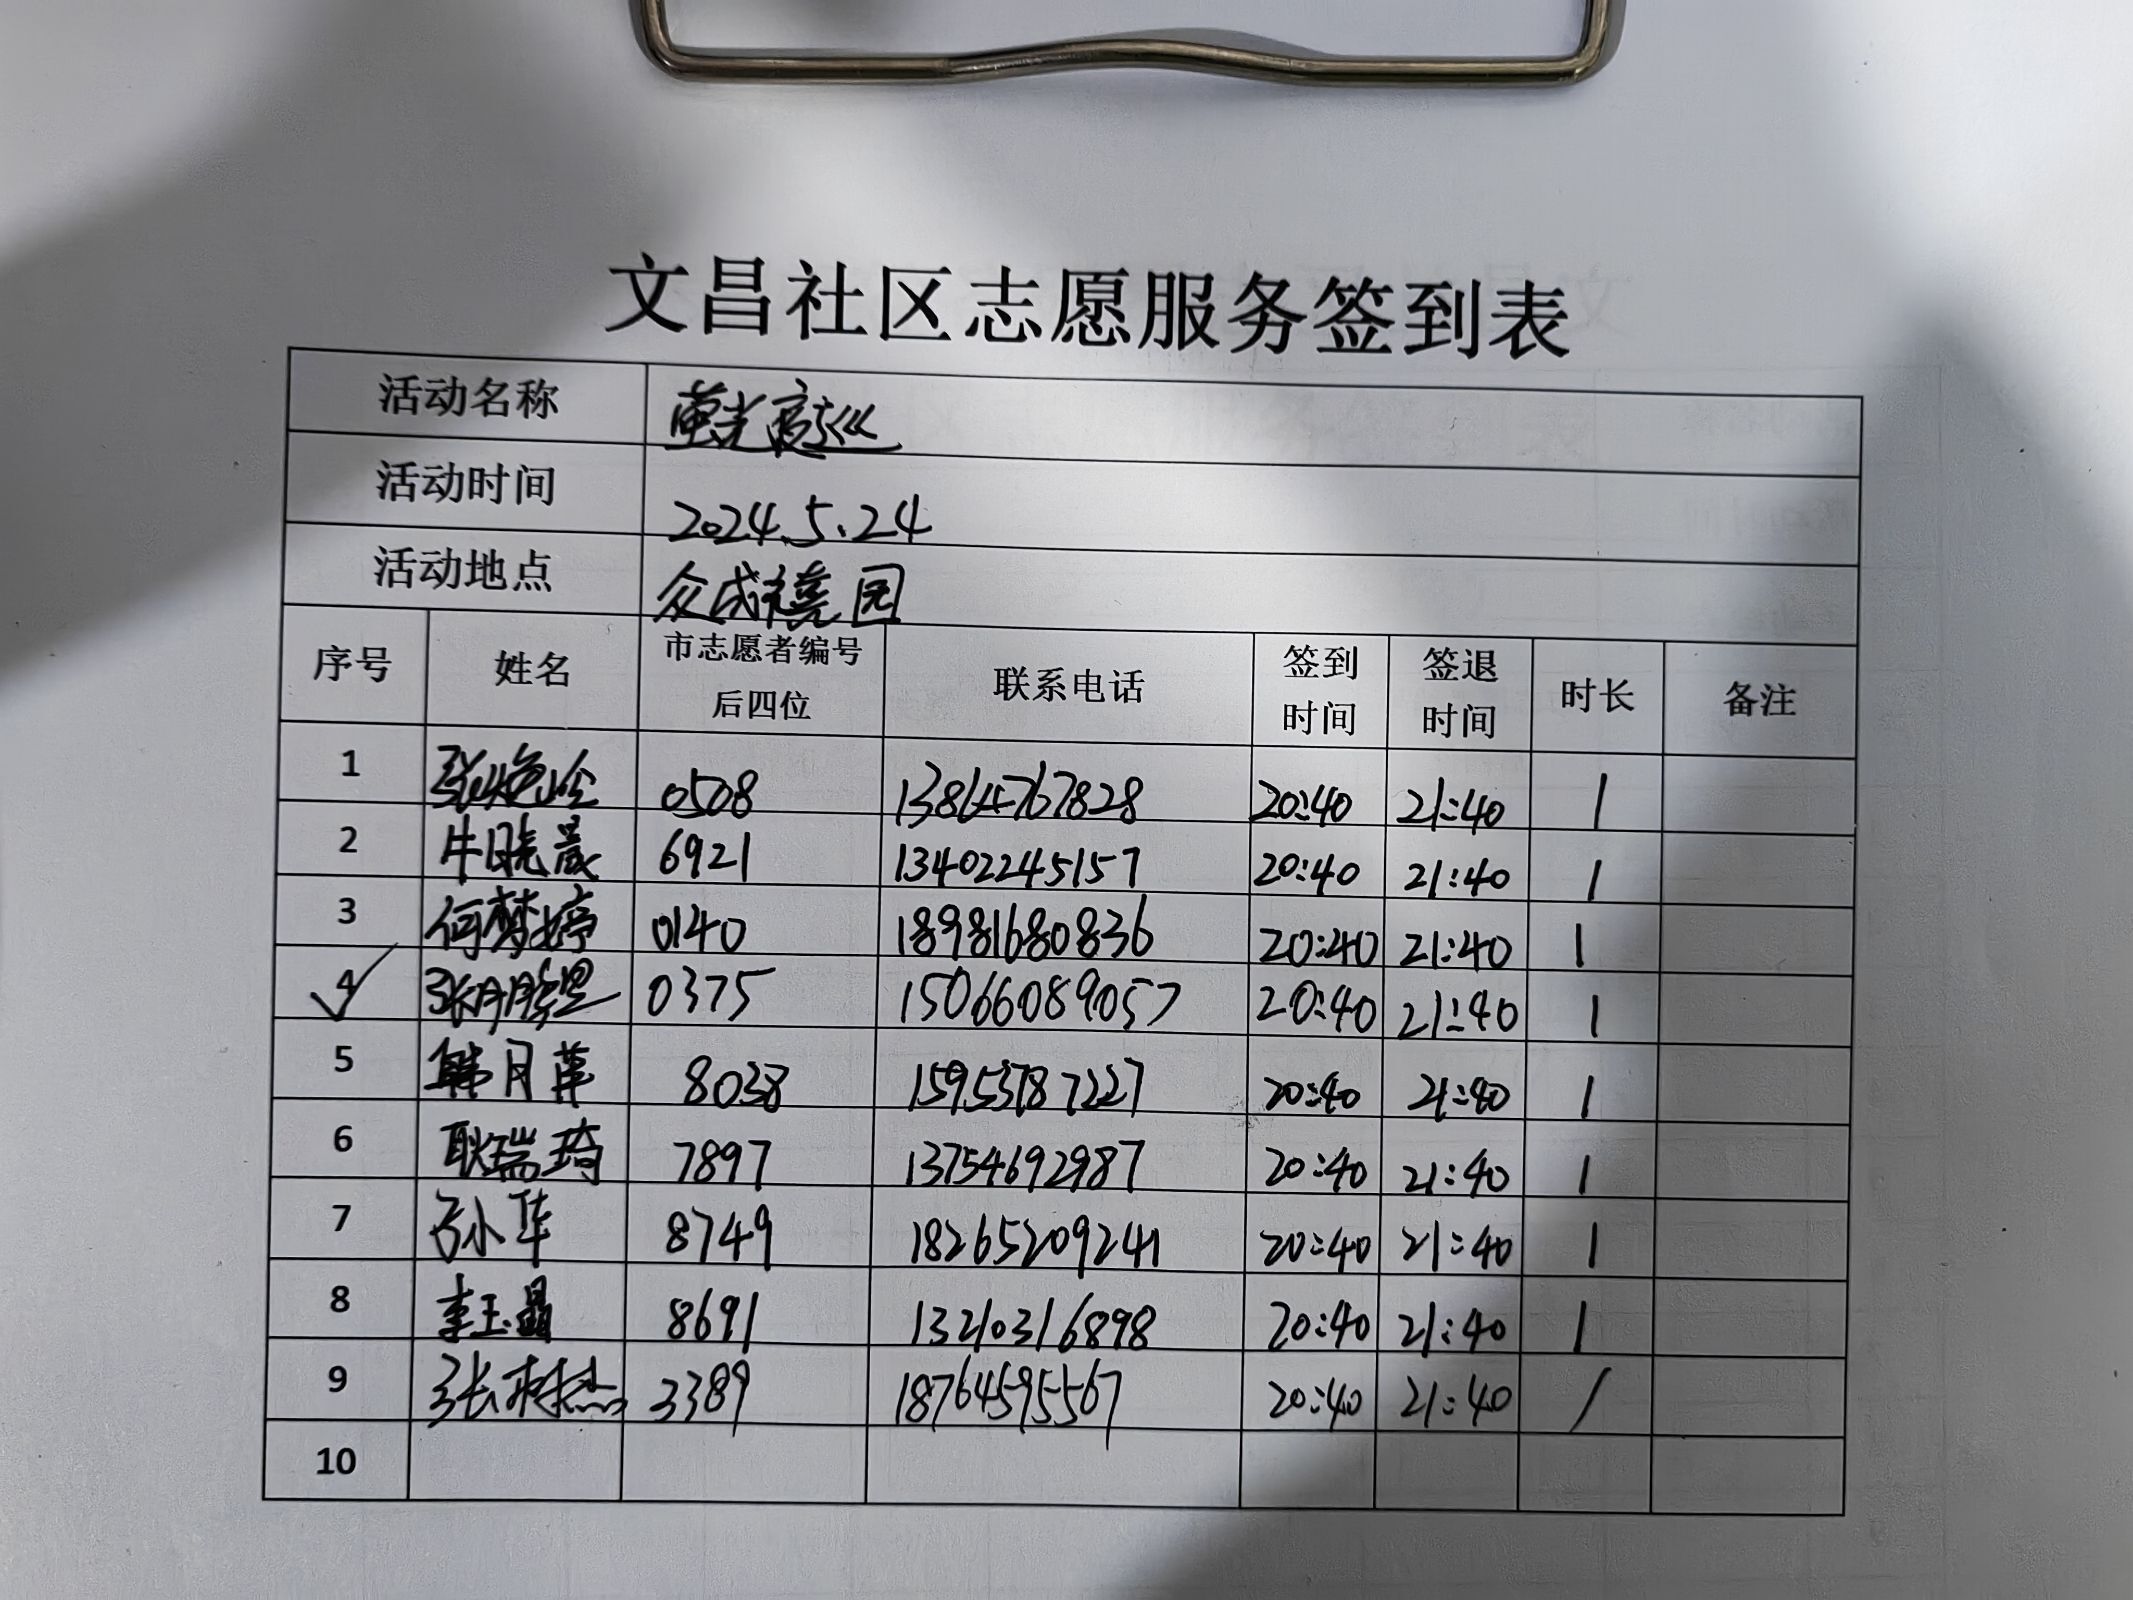 文昌社区志愿服务签到表
活动名称 萤光夜巡
活动时间 2024.5.24
活动地点 众成禧园
序号 姓名 市志愿者编号后四位 联系电话 签到时间 签退时间 时长 备注
1 0508 13864767828 20:40 21:40 1
2 牛晓晟 6921 13402245157 20:40 21:40 1
3 何梦婷 0140 18981680836 20:40 21:40 1
4 ✓ 0375 15066089057 20:40 21:40 1
5 韩月苹 8038 15953787227 20:40 21:40 1
6 耿瑞琦 7897 13754692987 20:40 21:40 1
7 孙华 8749 18265209241 20:40 21:40 1
8 李玉晶 8691 13210316898 20:40 21:40 1
9 3389 18764595567 20:40 21:40 1
10